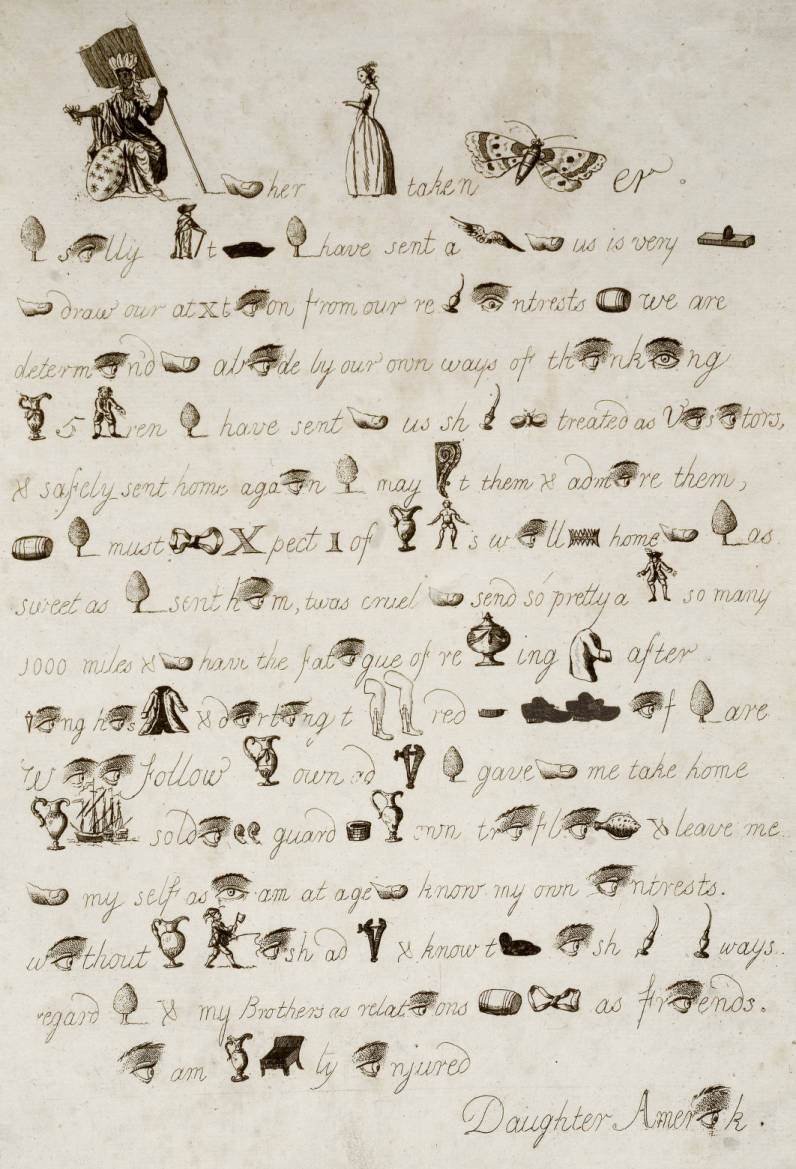 her taken er.
s lly t have sent a us is very
draw our at x t on from our re ntrests we are
determ n'd ab de by our own ways of th nk ng
5 ren have sent us sh treated as V s tors,
& safely sent home aga n may t them & adm re them,
must X pect 1 of s w ll home as
sweet as sent h m, twas cruel send so pretty a so many
1000 miles & have the fat gue of re ing after
ng h s & d rt ng t red f are
W follow own ad gave me take home
sold guard own tr fl & leave me
my self as am at age know my own ntrests.
w thout sh ad & know t sh ways.
regard & my Brothers as relat ons as fr ends.
am ly njured
Daughter Amer k.